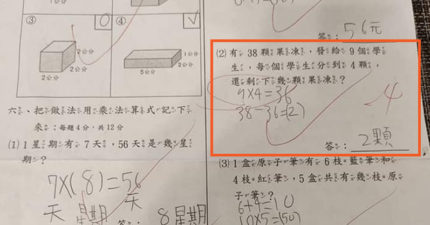 ③
0
④
√
2公分
2公分
2公分
5公分
2公分
六、把做法用乘法算式記下
來：每題4分，共12分
(1) 1星期有7天，56天是幾星
期？
7×(8)=56
天 星期 天
答：8星期
答：56元
(2) 有38顆果凍，發給9個學
生，每個學生分到4顆，
還剩下幾顆果凍？
9×4=36
38-36=(2)
-4
答：2顆
(3) 1盒原子筆有6枝藍筆和
4枝紅筆，5盒共有幾枝原
子筆？
6+4=10
10×5=(50)